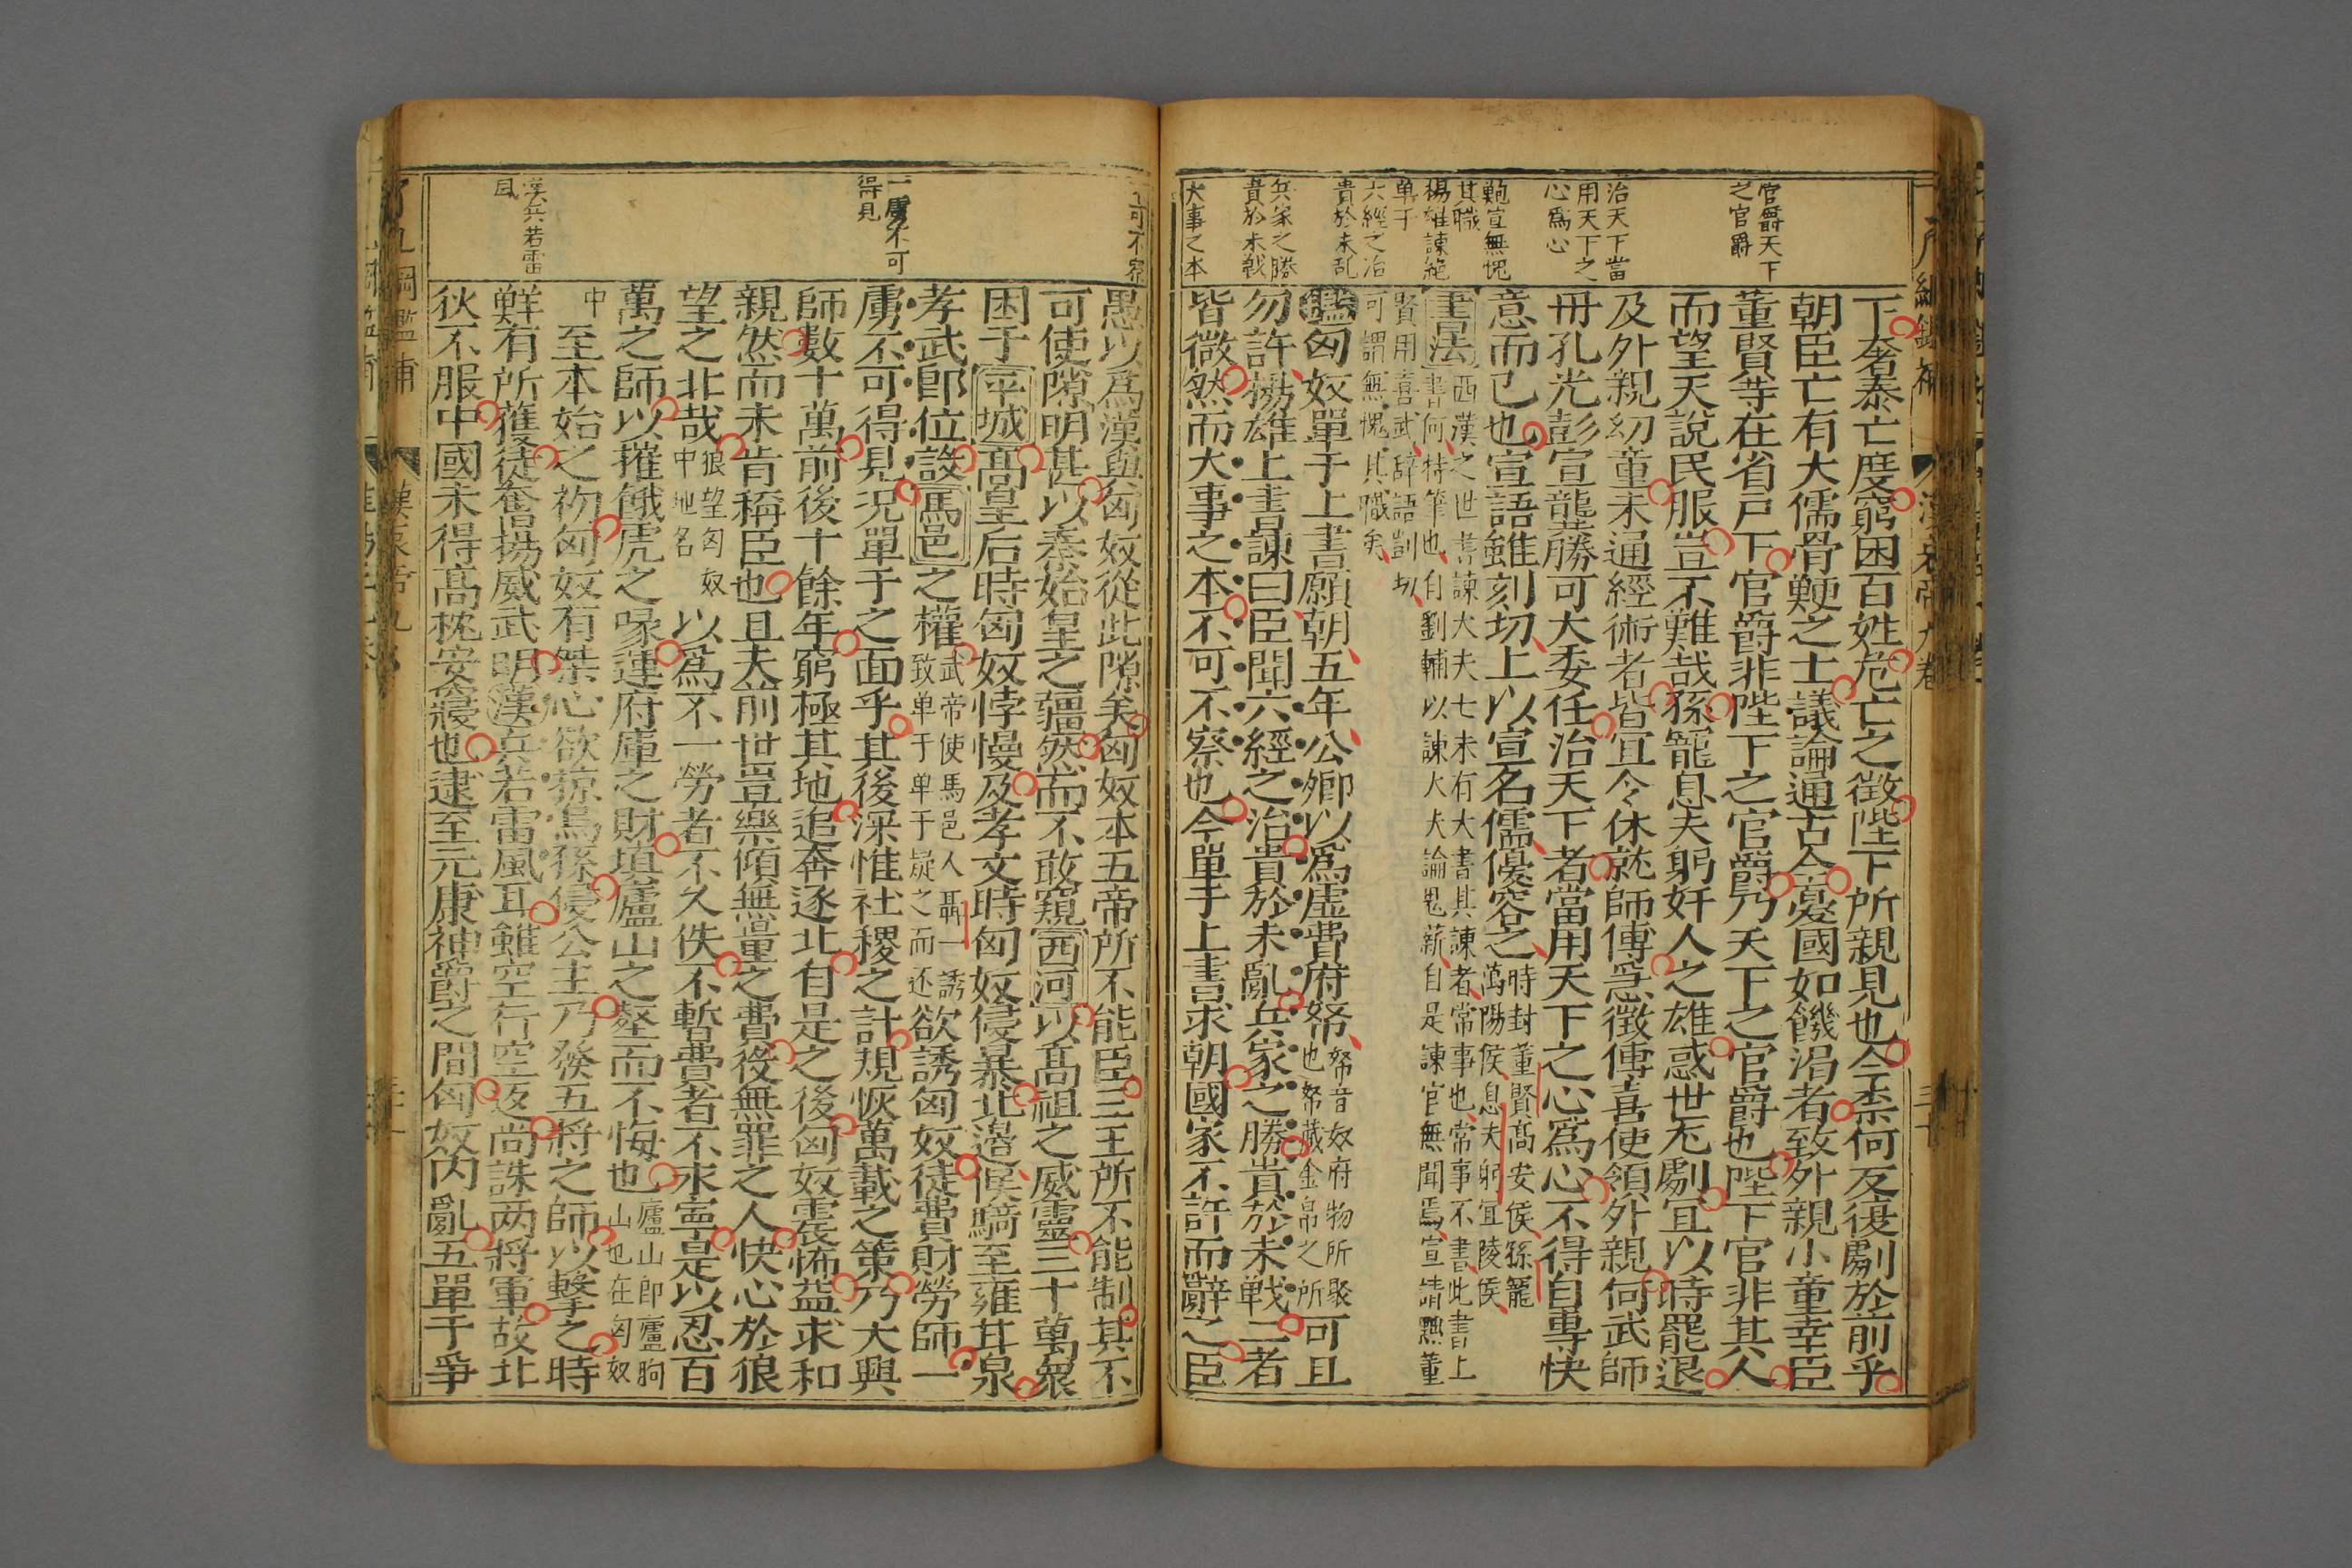 官爵天下
之官爵
治天下當
用天下之
心爲心
鮑宣無愧
其職
楊雄諫絶
單于
六經之治
貴於未乱
兵家之勝
貴於未戰
大事之本
下奢泰亡度窮困百姓危亡之徵陛下所親見也今柰何反復劇於前乎
朝臣亡有大儒骨鯁之士議論通古今憂國如饑渴者致外親小童幸臣
董賢等在省戶下官爵非陛下之官爵乃天下之官爵也陛下官非其人
而望天說民服豈不難哉孫寵息夫躬奸人之雄惑世尤劇宜以時罷退
及外親幼童未通經術者皆宜令休就師傅急徵傅喜使領外親何武師
冊孔光彭宣龍勝可大委任治天下者當用天下之心爲心不得自專快
意而已也宣語雖刻切上以宣名儒優容之時封董賢高安侯孫寵
萬陽侯息夫躬宜陵侯
書法西漢之世書諫大夫七未有大書其諫者常事也常事不書此書上
書何特筆也自劉輔以諫大夫論鬼薪自是諫官無聞焉宣請黜董
賢用喜武辭語剴切
可謂無愧其職矣
鑑匈奴單于上書願朝五年公卿以爲虛費府帑帑音奴府物所聚
也帑藏金帛之所可且
勿許揚雄上書諫曰臣聞六經之治貴於未亂兵家之勝貴於未戰二者
皆微然而大事之本不可不察也今單于上書求朝國家不許而辭之臣
不可不察
一虜不可
得見
漢兵若雷
風
愚以爲漢與匈奴從此隙矣匈奴本五帝所不能臣三王所不能制其不
可使隙明甚以秦始皇之疆然而不敢窺西河以高祖之威靈三十萬衆
困于平城高皇后時匈奴悖慢及孝文時匈奴侵暴北邊候騎至雍甘泉
孝武即位設馬邑之權武帝使馬邑人聶一誘
致单于单于疑之而还欲誘匈奴徒費財勞師一
虜不可得見况單于之面乎其後深惟社稷之計規恢萬載之策乃大興
師數十萬前後十餘年窮極其地追奔逐北自是之後匈奴震怖益求和
親然而未肯稱臣也且夫前世豈樂傾無量之費役無罪之人快心於狼
望之北哉狼望匈奴
中地名以爲不一勞者不久佚不暫費者不永寧是以忍百
萬之師以摧餓虎之喙運府庫之財塡廬山之壑而不悔也廬山即廬朐
山也在匈奴
中至本始之初匈奴有桀心欲掠烏孫侵公主乃發五將之師以擊之時
鮮有所獲徒奮揚威武明漢兵若雷風耳雖空行空返尚誅两將軍故北
狄不服中國未得高枕安寢也逮至元康神爵之間匈奴内亂五單于爭